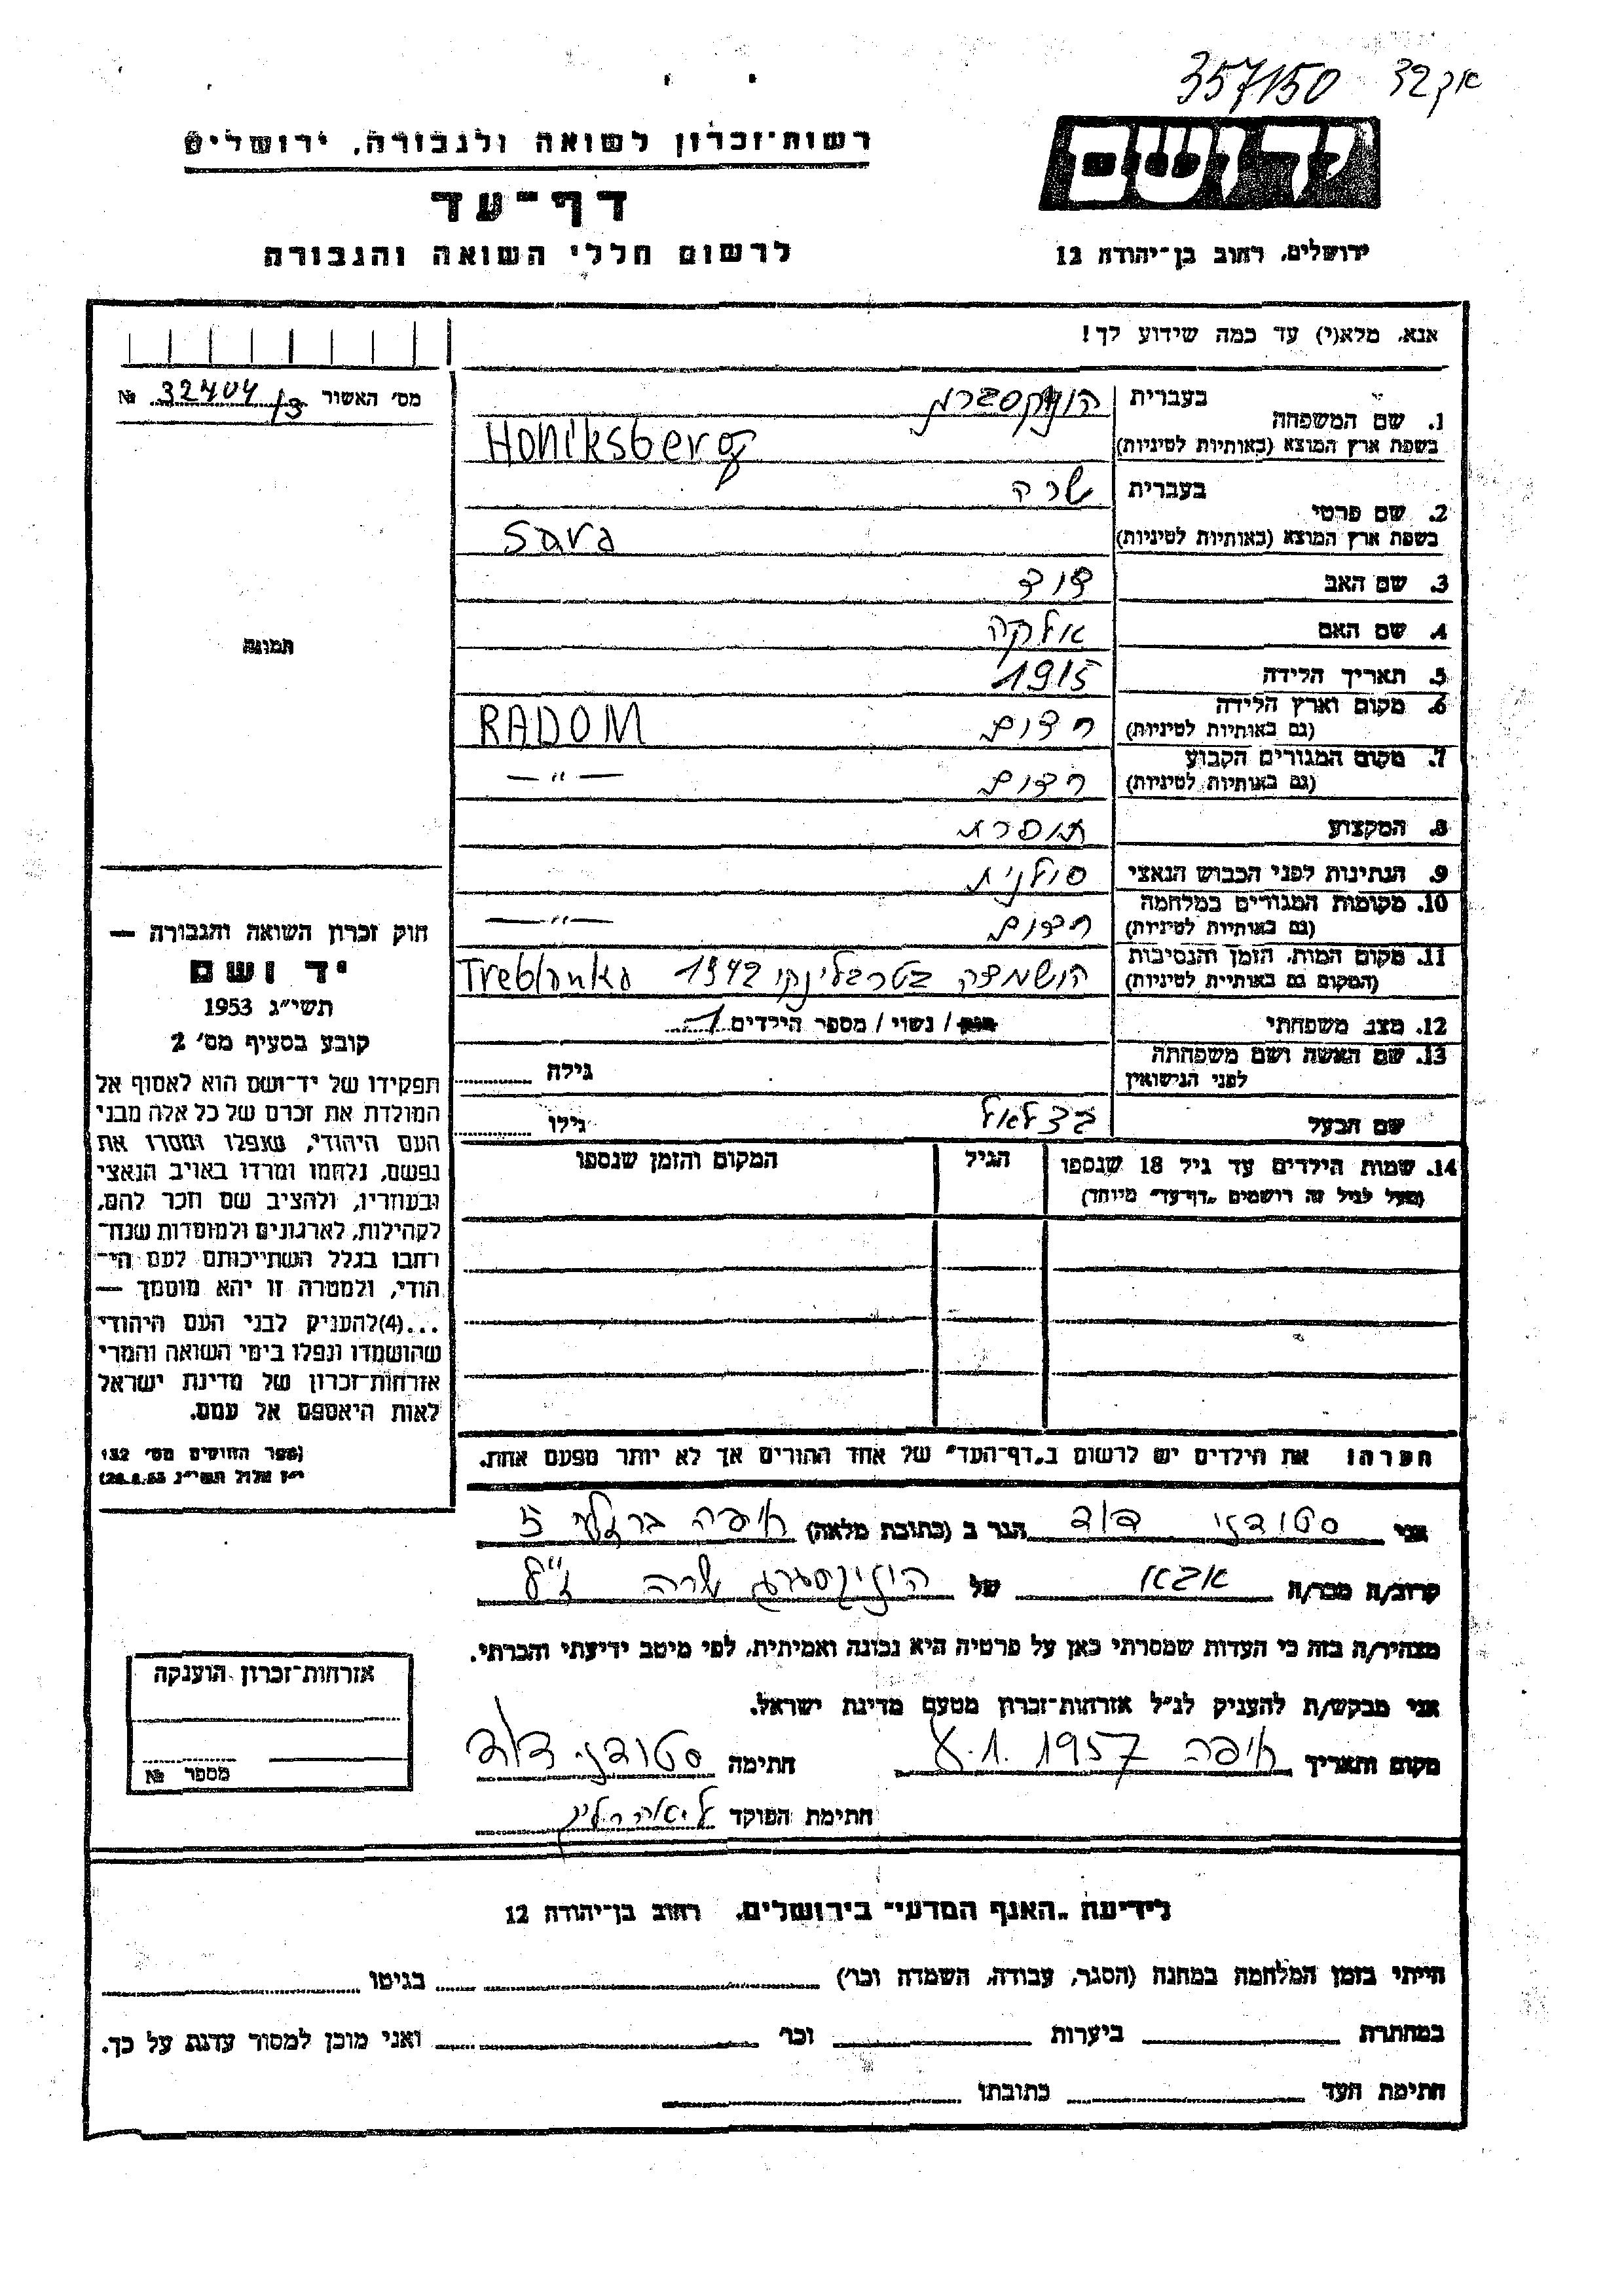 357/150 32 אק
רשות־זכרון לשואה ולגבורה, ירושלים
יד ושם
דף־עד
לרשום חללי השואה והגבורה
ירושלים, רחוב בן־יהודה 12
אנא, מלא(י) עד כמה שידוע לך!
מס׳ האשור 32404/3 №
1. שם המשפחה
בעברית הוניקסברג
בשפת ארץ המוצא (באותיות לטיניות) Honiksberg
2. שם פרטי
בעברית שרה
בשפת ארץ המוצא (באותיות לטיניות) Sara
3. שם האב דוד
4. שם האם אלקה
5. תאריך הלידה 1915
6. מקום וארץ הלידה
(גם באותיות לטיניות) רדום RADOM
7. מקום המגורים הקבוע
(גם באותיות לטיניות) רדום —״—
8. המקצוע תופרת
9. הנתינות לפני הכבוש הנאצי פולנית
10. מקומות המגורים במלחמה
(גם באותיות לטיניות) רדום —״—
11. מקום המות, הזמן והנסיבות
(המקום גם באותיות לטיניות) הושמדה בטרבלינקי 1942 Treblinka
12. מצב משפחתי רווק / נשוי / מספר הילדים 1
13. שם האשה ושם משפחתה
לפני הנישואין גילה
שם הבעל בצלאל גילו
14. שמות הילדים עד גיל 18 שנספו הגיל המקום והזמן שנספו
(מעל לגיל זה רושמים „דף־עד״ מיוחד)
הערה! את הילדים יש לרשום ב„דף־העד״ של אחד ההורים אך לא יותר מפעם אחת.
תמונה
חוק זכרון השואה והגבורה —
יד ושם
תשי״ג 1953
קובע בסעיף מס׳ 2
תפקידו של יד־ושם הוא לאסוף אל
המולדת את זכרם של כל אלה מבני
העם היהודי, שנפלו ומסרו את
נפשם, נלחמו ומרדו באויב הנאצי
ובעוזריו, ולהציב שם וזכר להם,
לקהילות, לארגונים ולמוסדות שנח־
רבו בגלל השתייכותם לעם הי־
הודי, ולמטרה זו יהא מוסמך —
...(4) להעניק לבני העם היהודי
שהושמדו ונפלו בימי השואה והמרי
אזרחות־זכרון של מדינת ישראל
לאות היאספם אל עמם.
(ספר החוקים מס׳ 132
י״ז אלול תשי״ג 28.8.53)
אני סטודני דוד הגר ב (כתובת מלאה) חיפה ברזלי 5
קרוב/ה מכר/ה אבא של הוניקסברג שרה ז״ל
מצהיר/ה בזה כי העדות שמסרתי כאן על פרטיה היא נכונה ואמיתית, לפי מיטב ידיעתי והכרתי.
אני מבקש/ת להעניק לנ״ל אזרחות־זכרון מטעם מדינת ישראל.
מקום ותאריך חיפה 8.1.1957 חתימה סטודני דוד
חתימת הפוקד
אזרחות־זכרון הוענקה
מספר №
לידיעת „האגף המדעי״ בירושלים, רחוב בן־יהודה 12
הייתי בזמן המלחמה במחנה (הסגר, עבודה, השמדה וכו׳) בגיטו
במחתרת ביערות וכו׳ ואני מוכן למסור עדות על כך.
חתימת העד כתובתו